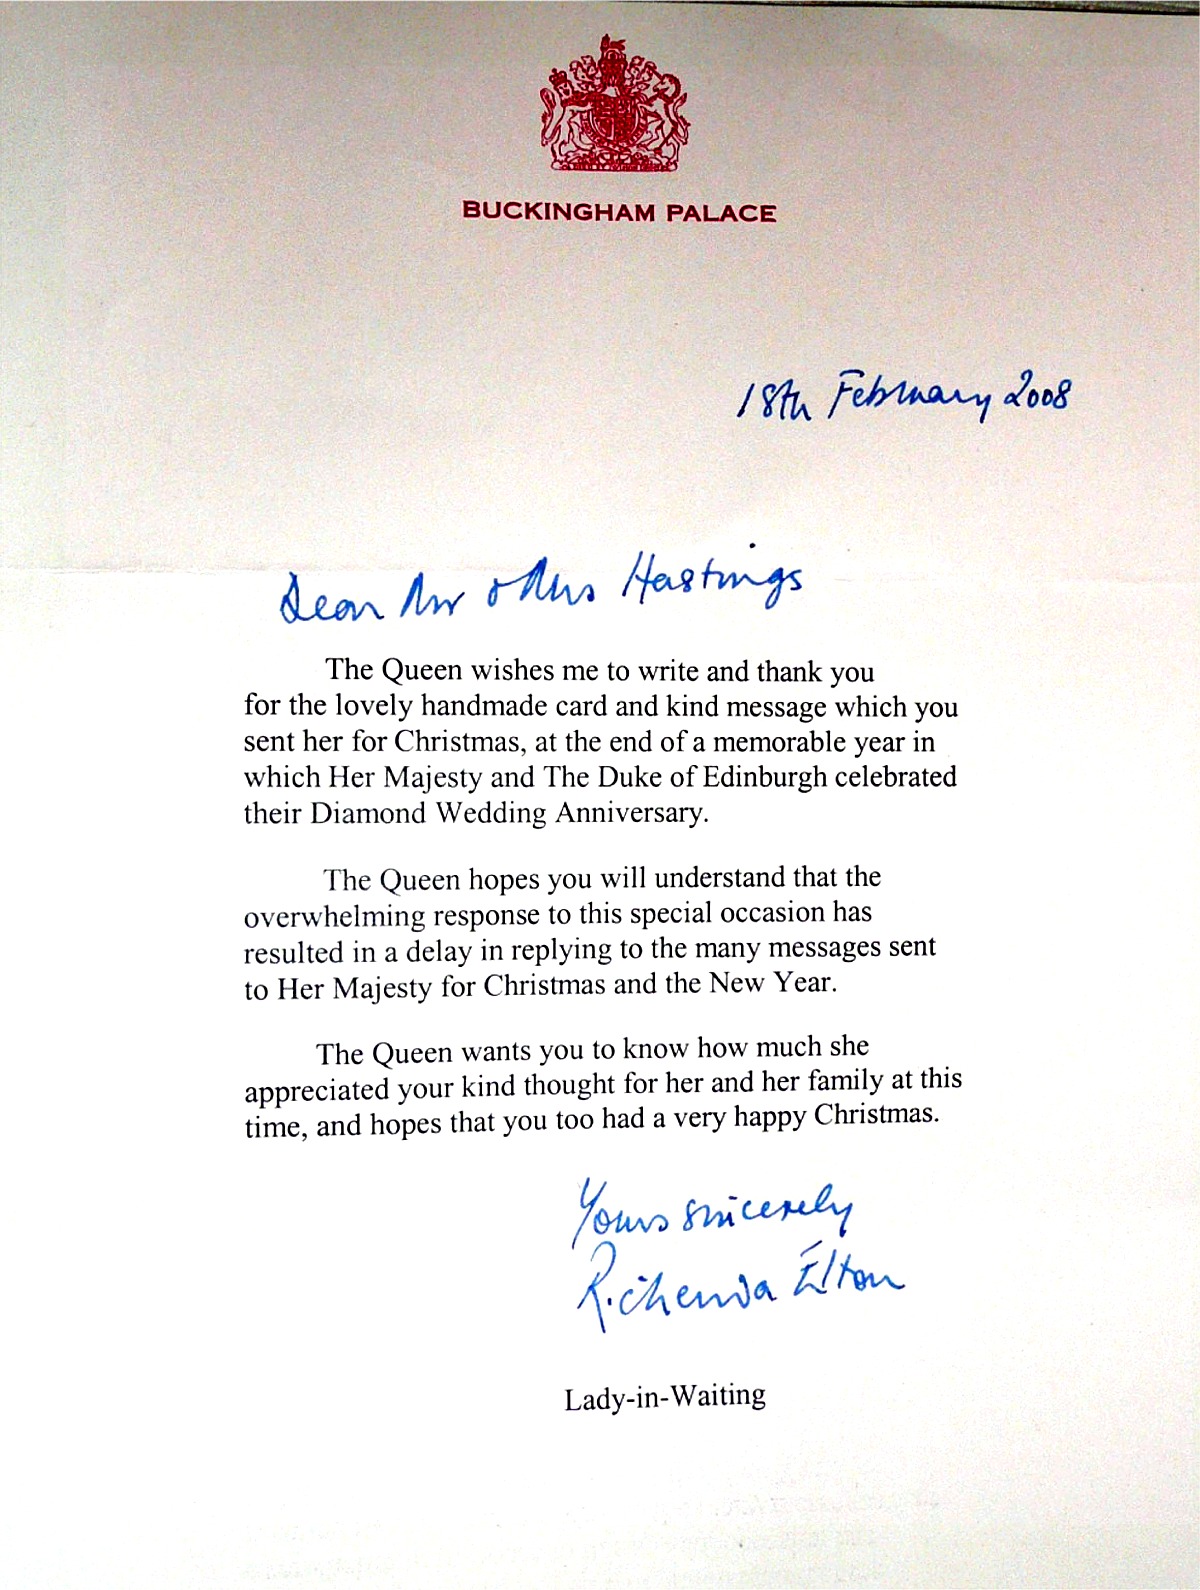 BUCKINGHAM PALACE
18th February 2008
Dear Mr & Mrs Hastings
The Queen wishes me to write and thank you
for the lovely handmade card and kind message which you
sent her for Christmas, at the end of a memorable year in
which Her Majesty and The Duke of Edinburgh celebrated
their Diamond Wedding Anniversary.
The Queen hopes you will understand that the
overwhelming response to this special occasion has
resulted in a delay in replying to the many messages sent
to Her Majesty for Christmas and the New Year.
The Queen wants you to know how much she
appreciated your kind thought for her and her family at this
time, and hopes that you too had a very happy Christmas.
Yours sincerely
Richenda Elton
Lady-in-Waiting